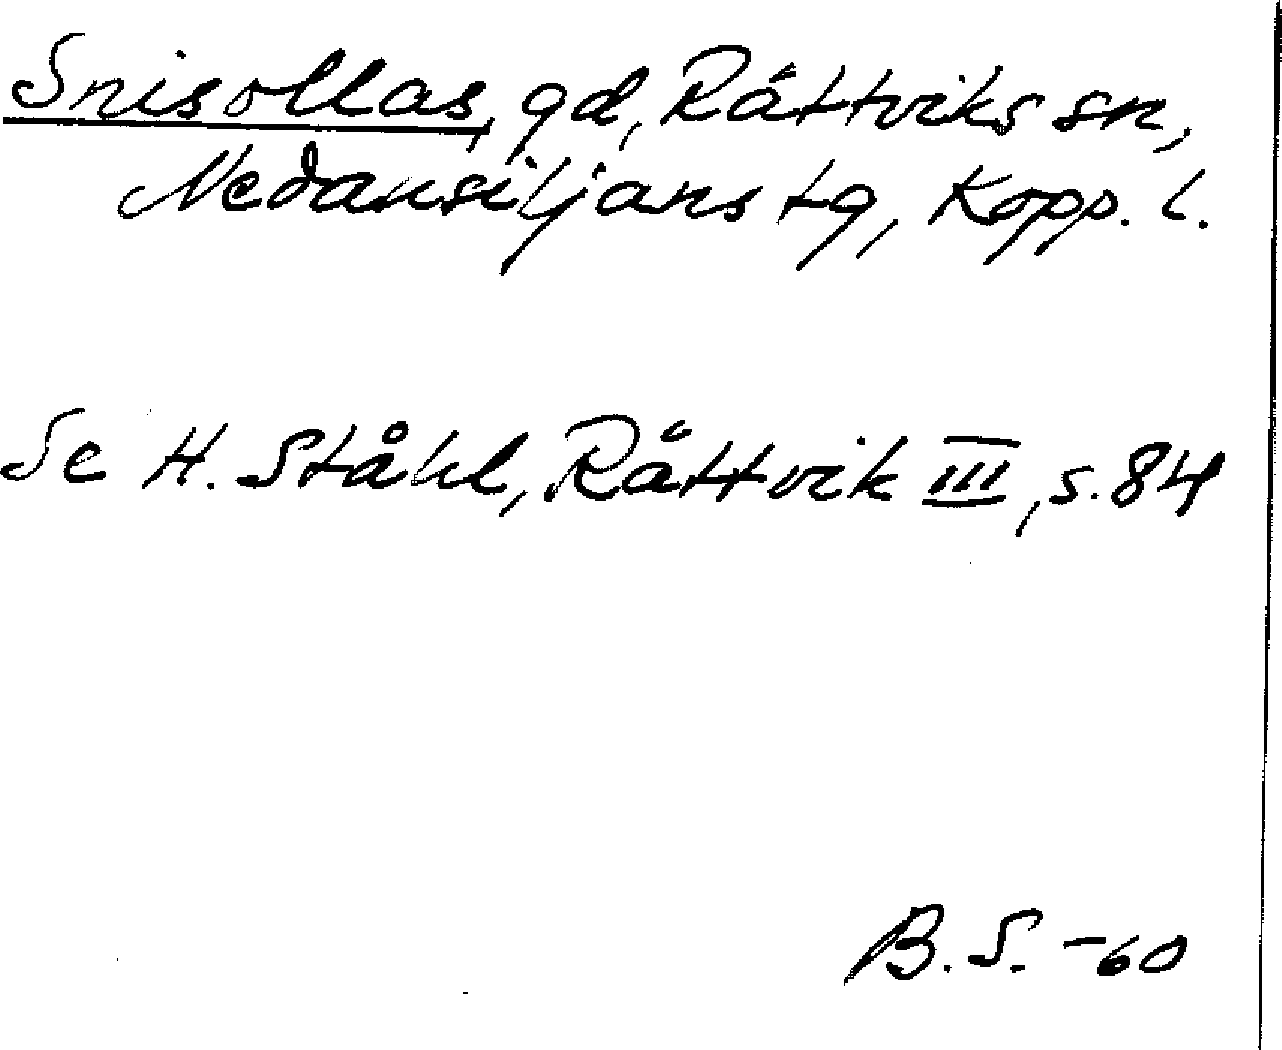 Snisollas, gd, Rättviks sn,
Nedansiljans tg, Kopp. l.
Se H. Ståhl, Rättvik III, s. 84
B. S. -60